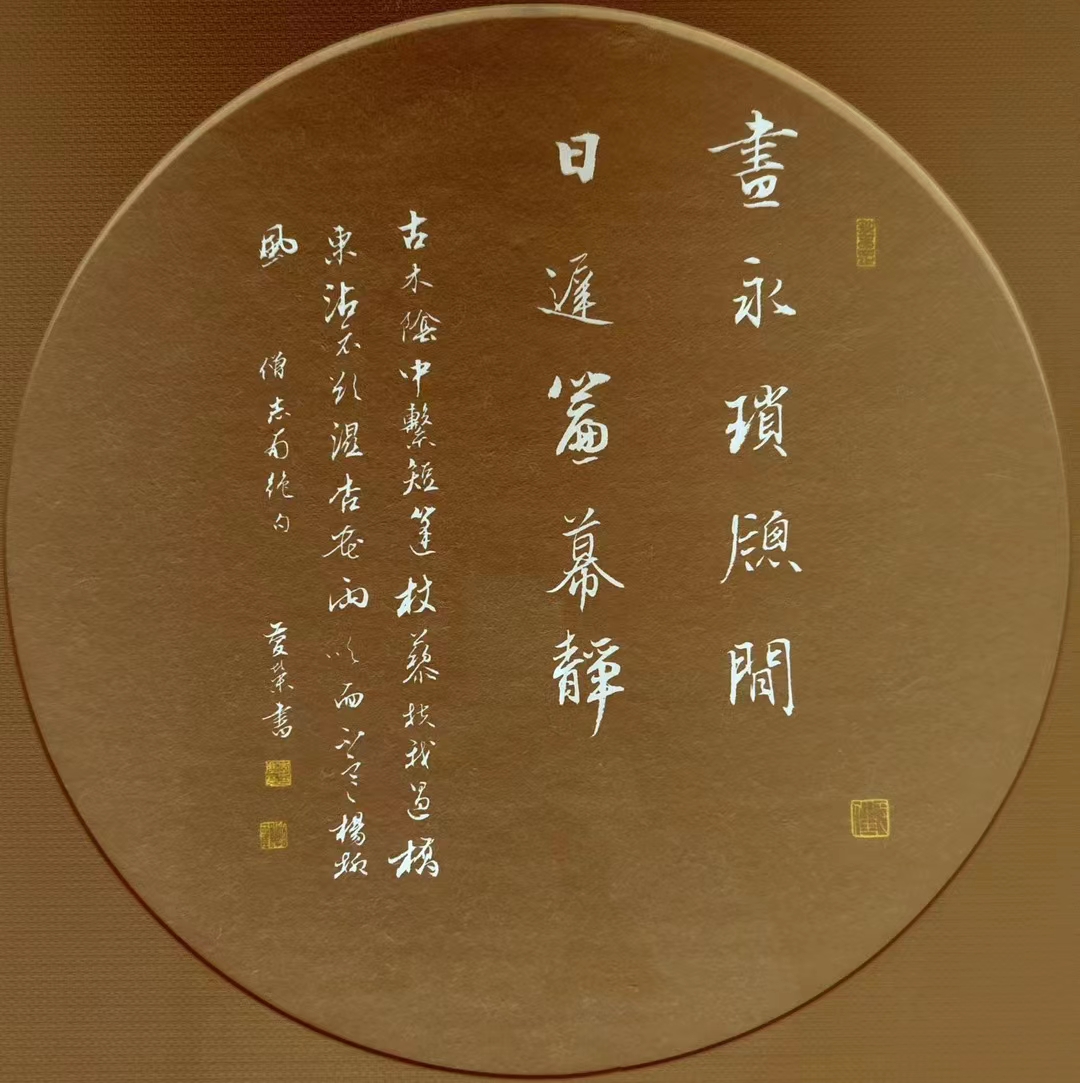 晝永瑣牕閒
日遲簾幕靜
古木陰中繫短篷杖藜扶我過橋
東沾衣欲濕杏花雨吹面不寒楊柳
風 僧志南絕句 書